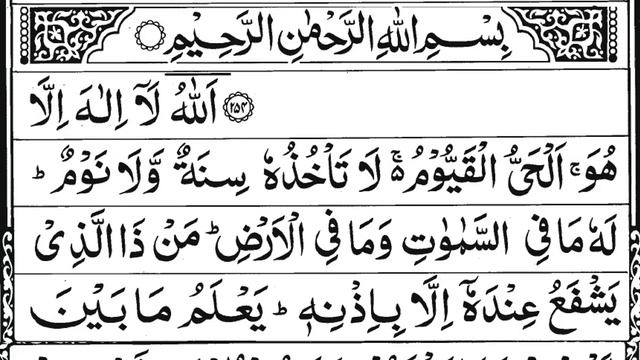 بِسْمِ اللهِ الرَّحْمٰنِ الرَّحِيْمِ
﴿۲۵۴﴾ اَللهُ لَآ اِلٰهَ اِلَّا
هُوَ ۚ اَلْحَيُّ الْقَيُّوْمُ ۬ۚ لَا تَاْخُذُهٗ سِنَةٌ وَّلَا نَوْمٌ ؕ
لَهٗ مَا فِي السَّمٰوٰتِ وَمَا فِي الْاَرْضِ ؕ مَنْ ذَا الَّذِيْ
يَشْفَعُ عِنْدَهٗۤ اِلَّا بِاِذْنِهٖ ؕ يَعْلَمُ مَا بَيْنَ